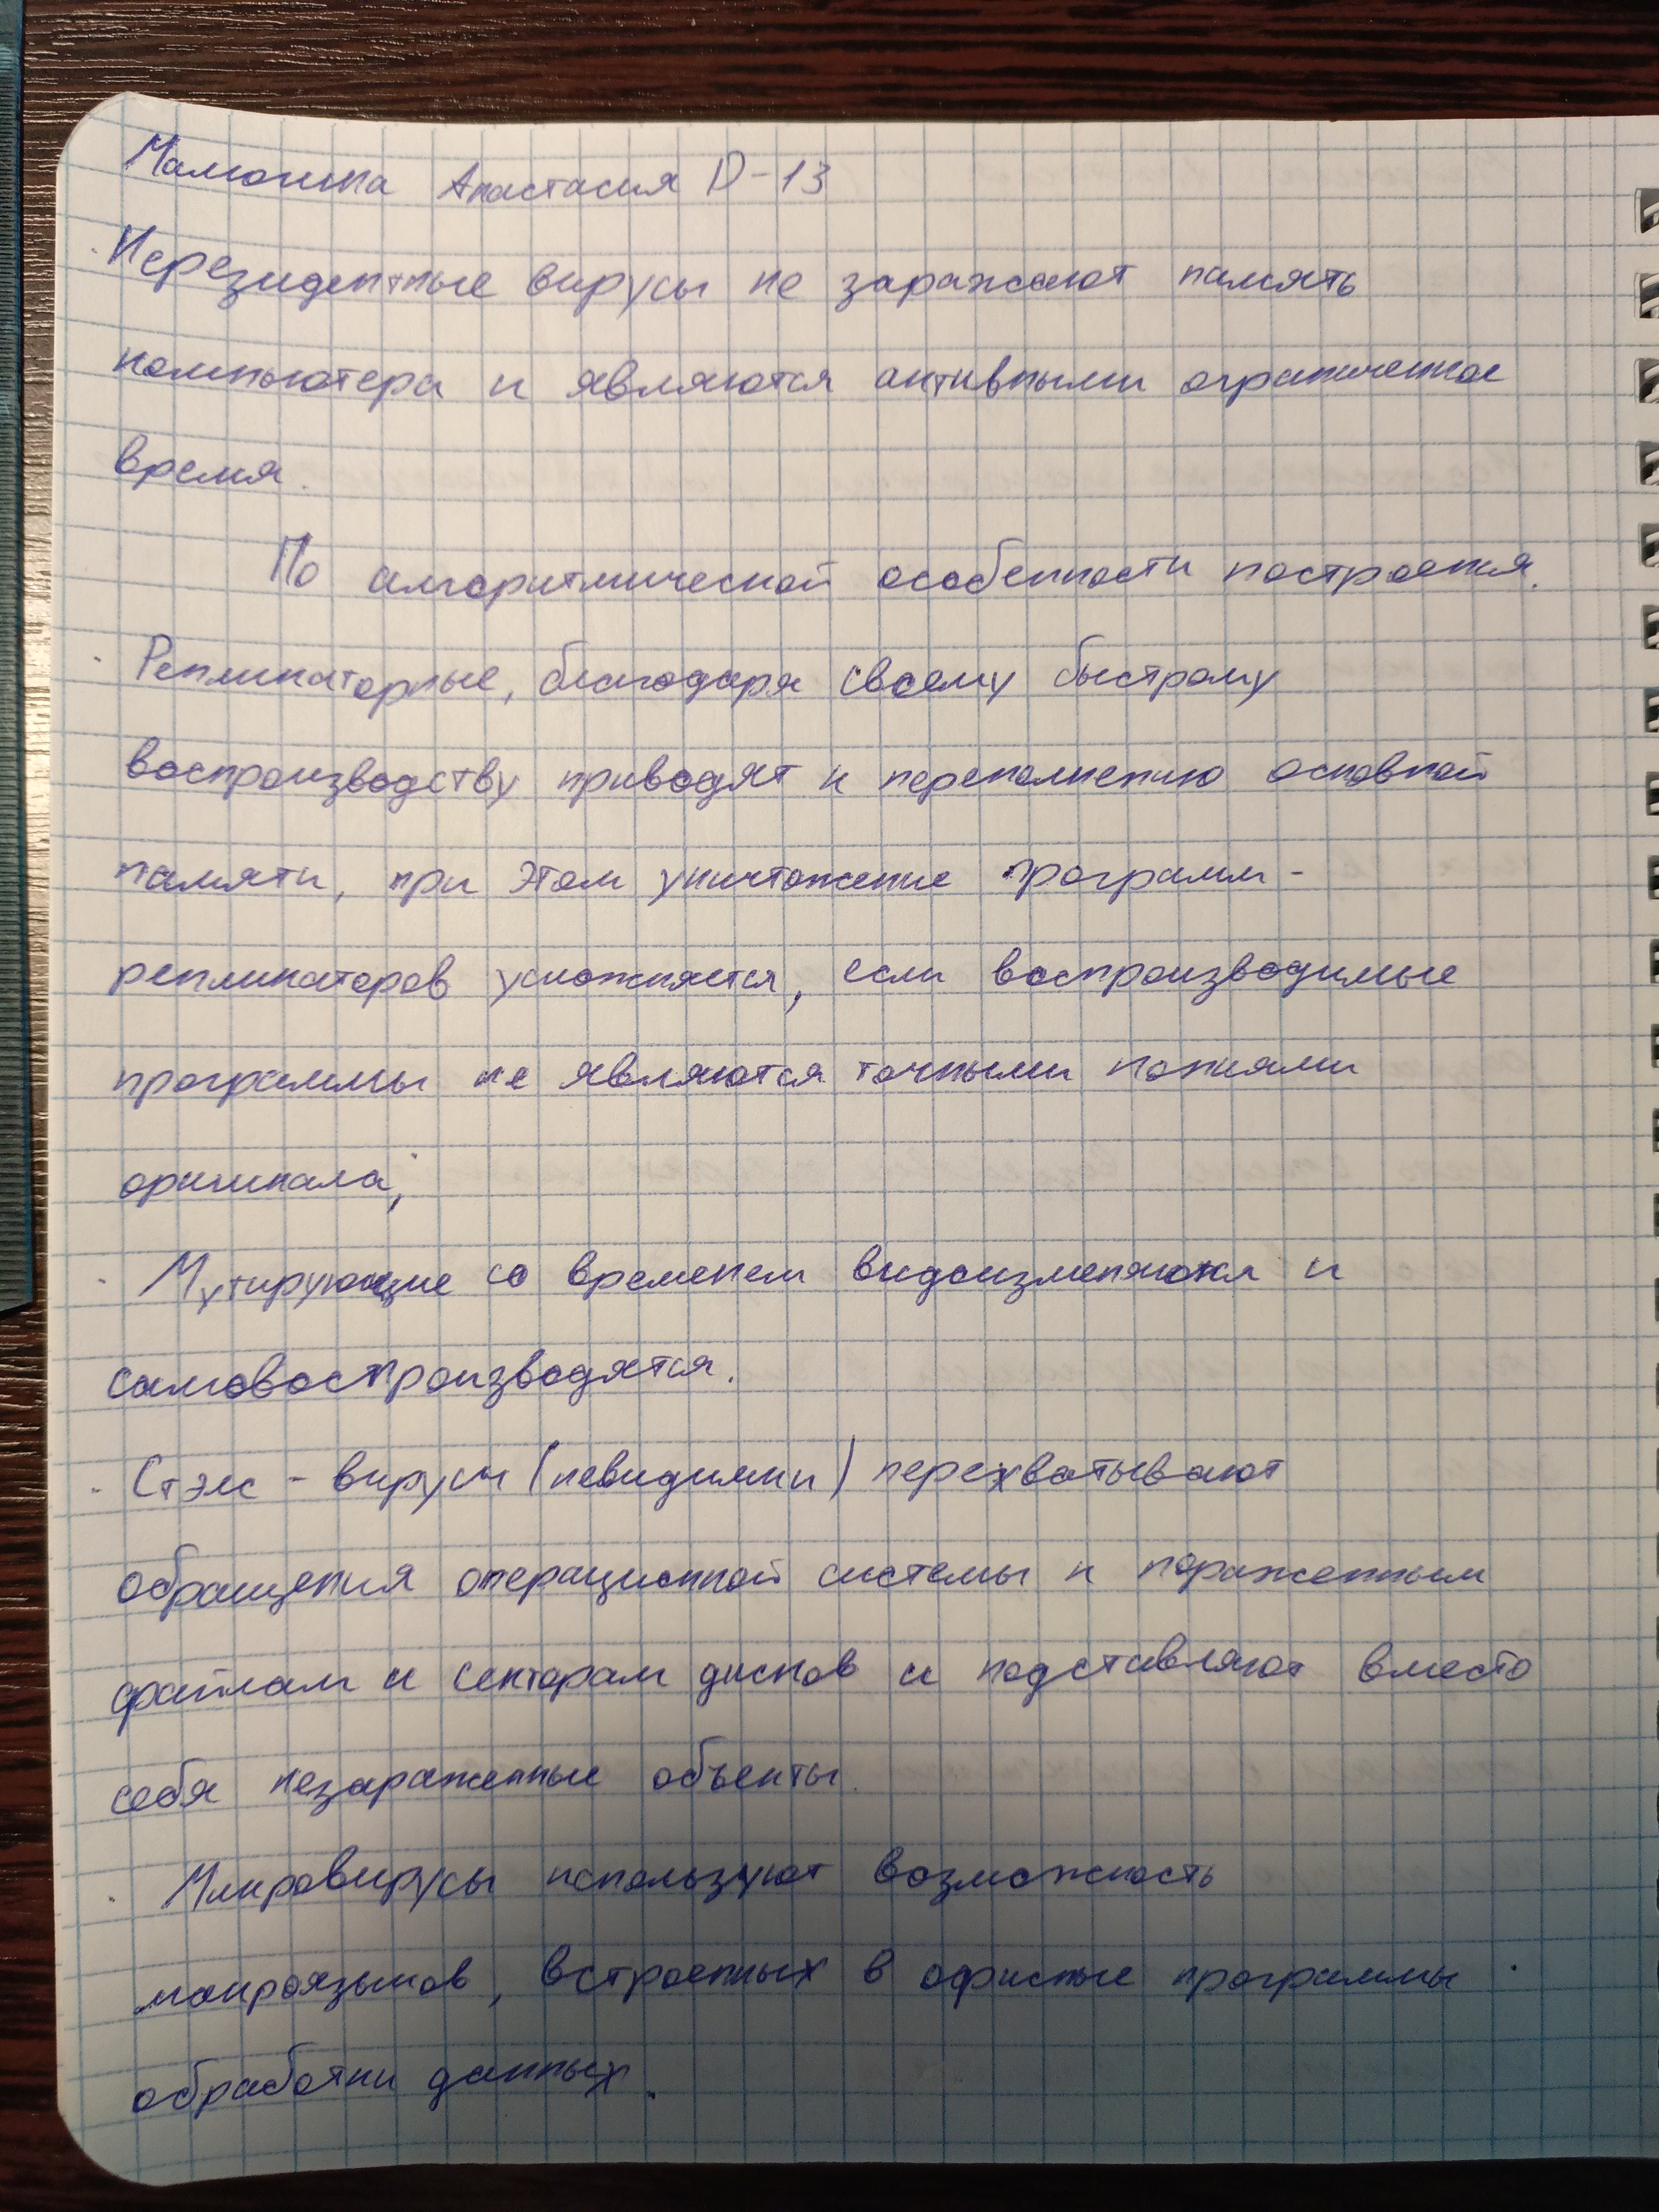 Анастасия D-13
· Нерезидентные вирусы не заражают память
компьютера и являются активными ограниченное
время.
По алгоритмической особенности построения.
· Репликаторные, благодаря своему быстрому
воспроизводству приводят к переполнению основной
памяти, при этом уничтожение программ-
репликаторов усложняется, если воспроизводимые
программы не являются точными копиями
оригинала;
· Мутирующие со временем видоизменяются и
самовоспроизводятся.
· Стэлс - вирусы (невидимки) перехватывают
обращения операционной системы к пораженным
файлам и секторам дисков и подставляют вместо
себя незараженные объекты.
· Микровирусы используют возможность
макроязыков, встроенных в офисные программы
обработки данных.